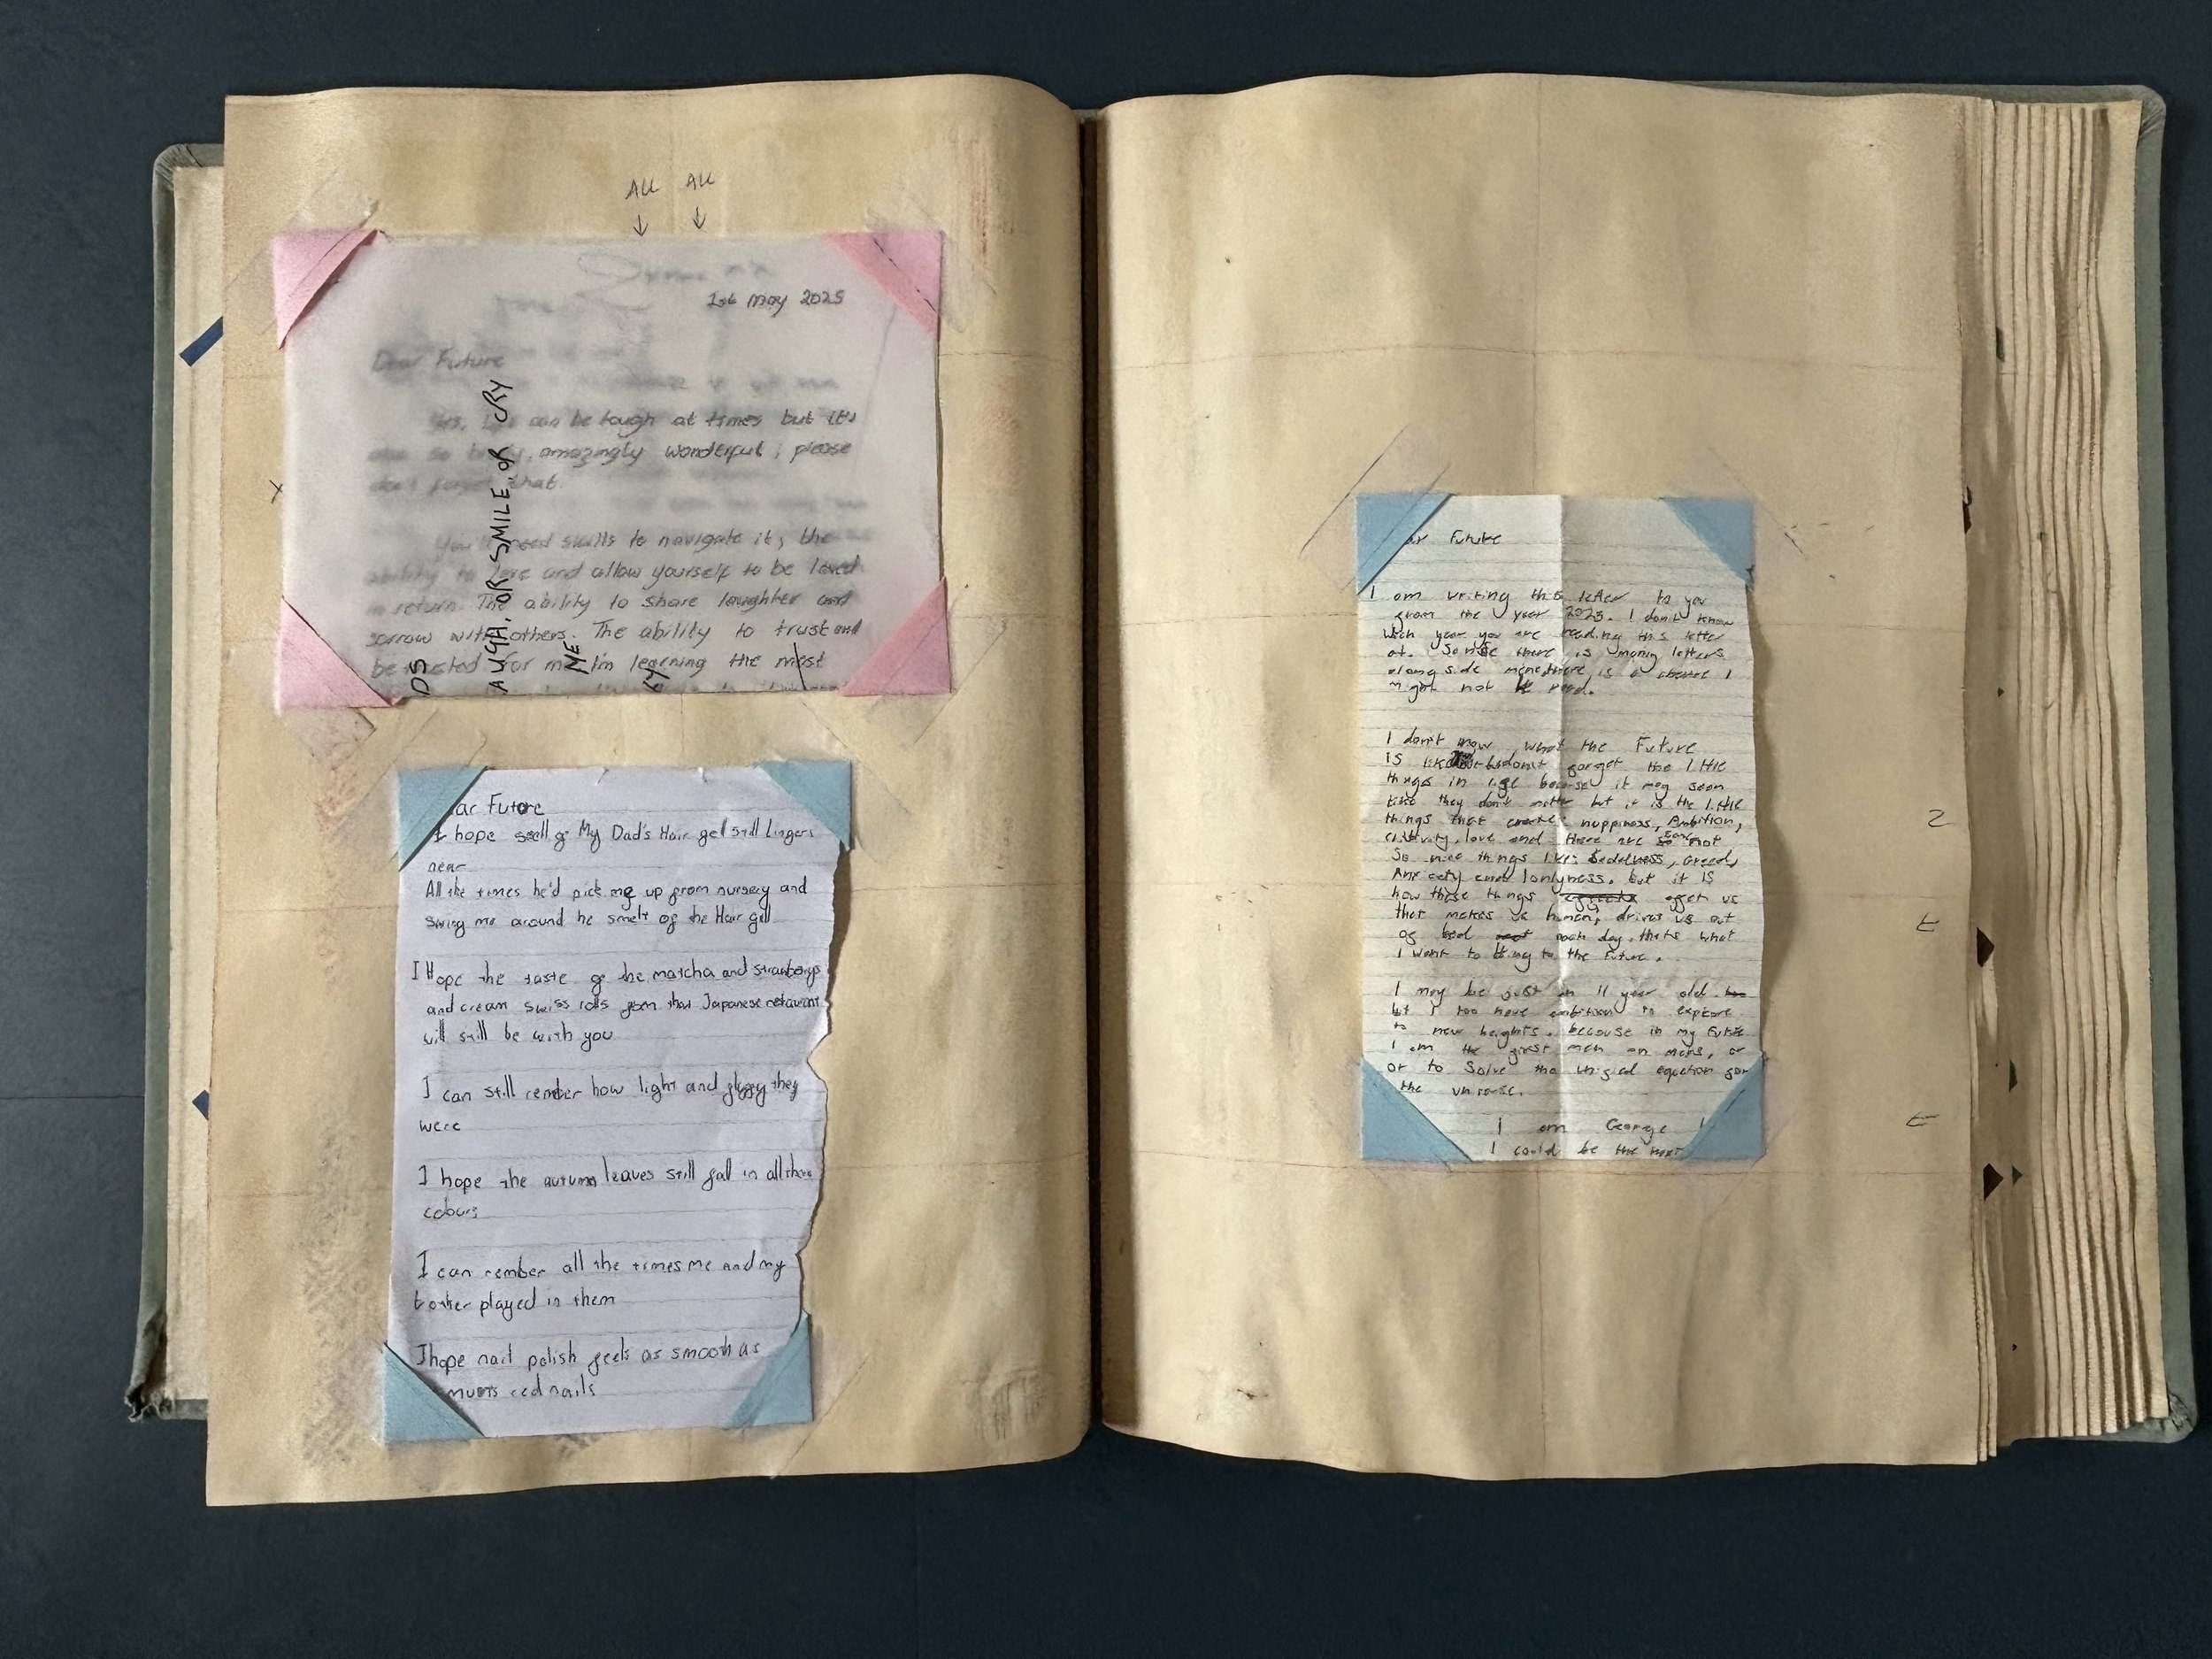 ALL ALL
1st May 2025
Dear Future
Yes, can be tough at times but it's
also so amazingly wonderful; please
don't forget that.
You'll need skills to navigate it, the
ability to love and allow yourself to be loved
in return. The ability to share laughter and
sorrow with others. The ability to trust and
be trusted. For me I'm learning the most
OR SMILE, OR CRY
ar Future
I hope smell of My Dad's Hair gel still Lingers
near
All the times he'd pick me up from nursery and
swing me around he smelt of the Hair gell
I Hope the taste of the matcha and strawberrys
and cream swiss rolls from that Japanese retaurant
will still be with you
I can still rember how light and fluffy they
were
I hope the autumn leaves still fall in all there
colours
I can rember all the times me and my
brother played in them
I hope nail polish feels as smooth as
mums red nails
ar Future
I am writing this letter to you
from the year 2025. I don't know
wich year you are reading this letter
at. Sense there is many letters
along side mine, there is a chance I
might not be read.
I don't know what the Future
is like but don't forget the little
things in life because it may seem
like they don't matter but it is the little
things that create happiness, Ambition,
love and there are some not
so nice things like: Sadelness, Greed,
Anxiety and lonlyness. but it is
how those things effect us
that makes us human, drives us out
of bed each day. thats what
I want to bring to the Future.
I may be just an 11 year old
but I too have ambition to explore
to new heights. because in my Future
I am the first man on mars, or
or to Solve the unified equation for
the universe.
I am George !
I could be the next